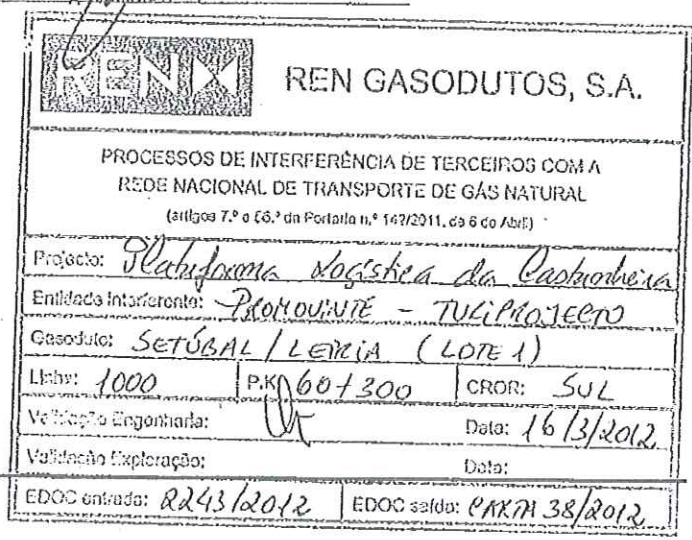 REN REN GASODUTOS, S.A.
PROCESSOS DE INTERFERÊNCIA DE TERCEIROS COM A
REDE NACIONAL DE TRANSPORTE DE GÁS NATURAL
(artigos 7.º e 66.º da Portaria n.º 142/2011, de 6 de Abril)
Projecto: Plataforma Logística da Castanheira
Entidade Interferente: PROMOVINTE - TULIPROJECTO
Gasoduto: SETÚBAL / LEIRIA (LOTE 1)
Linha: 1000 P.K. 60+300 CROR: SUL
Validação Engenharia: Data: 16/3/2012
Validação Exploração: Data:
EDOC entrada: 2243/2012 EDOC saída: CARTA 38/2012